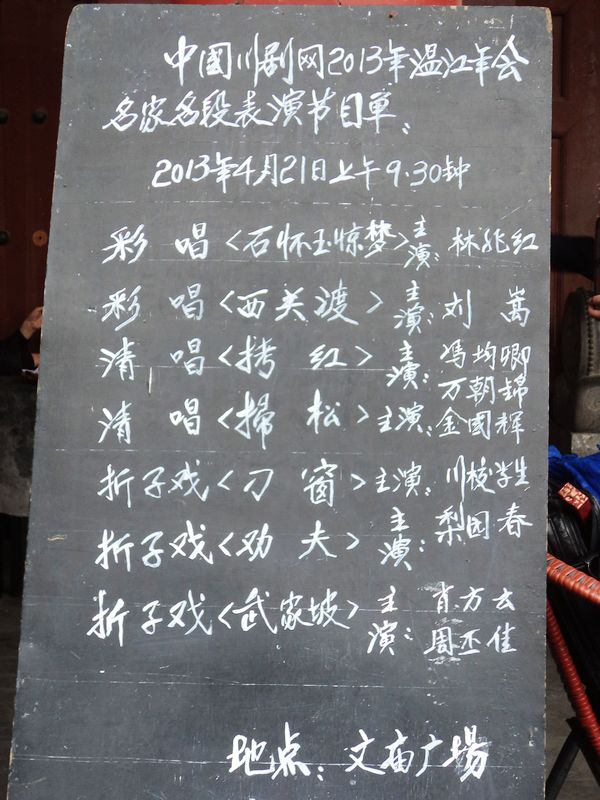 中國川剧网2013年温江年会
名家名段表演节目单:
2013年4月21日上午9.30钟
彩 唱<石怀玉惊梦>主演:林兆红
彩 唱<西关渡>主演:刘 嵩
清 唱<拷 红>主演:冯均卿 万朝錦
清 唱<掃 松>主演:金國辉
折子戏<刁 窗>主演:川校学生
折子戏<劝 夫>主演:梨园春
折子戏<武家坡>主演:肖方云 周丕佳
地点:文庙广場